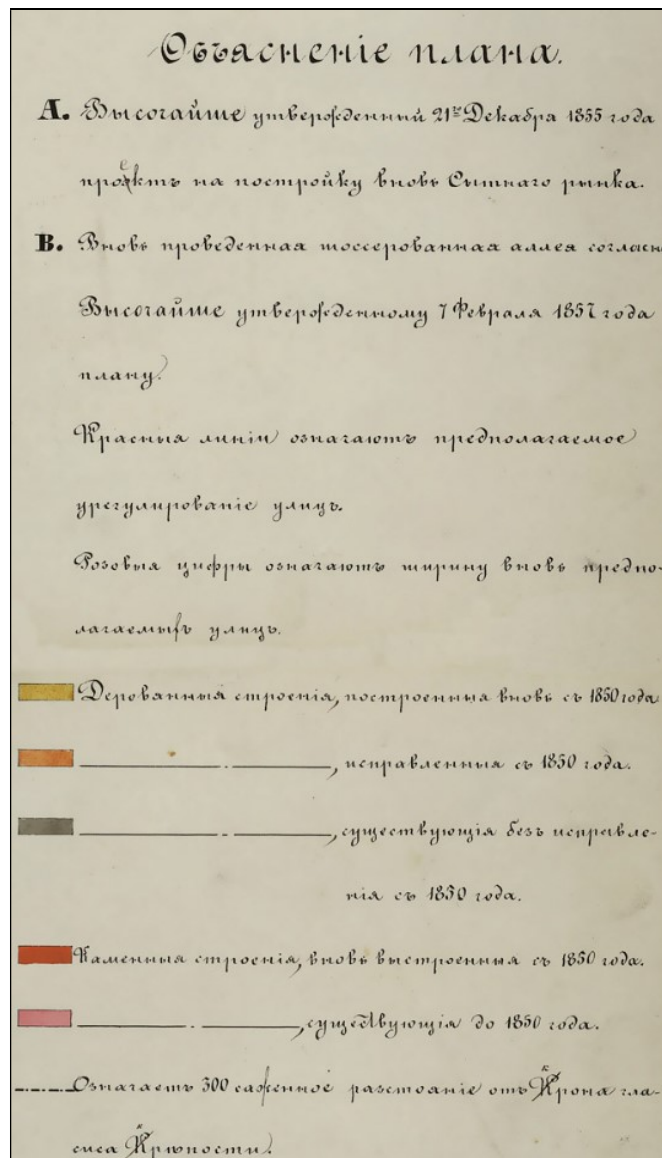 Объясненіе плана.
А. Высочайше утвержденный 21го Декабря 1855 года
проэктъ на постройку вновь Сытнаго рынка.
В. Вновь проведенная шоссерованная аллея согласн
Высочайше утвержденному 7 Февраля 1857 года
плану.
Красныя линіи означаютъ предполагаемое
урегулированіе улицъ.
Розовыя цифры означаютъ ширину вновь предпо-
лагаемыхъ улицъ.
Дерованныя строенія, построенныя вновь съ 1850 года
————— . —————, исправленныя съ 1850 года.
————— . —————, существующія безъ исправле-
нія съ 1850 года.
Каменныя строенія, вновь выстроенныя съ 1850 года.
————— . —————, существующія до 1850 года.
Означаетъ 300 саженное разстояніе отъ Крона гла-
сиса Крѣпости.